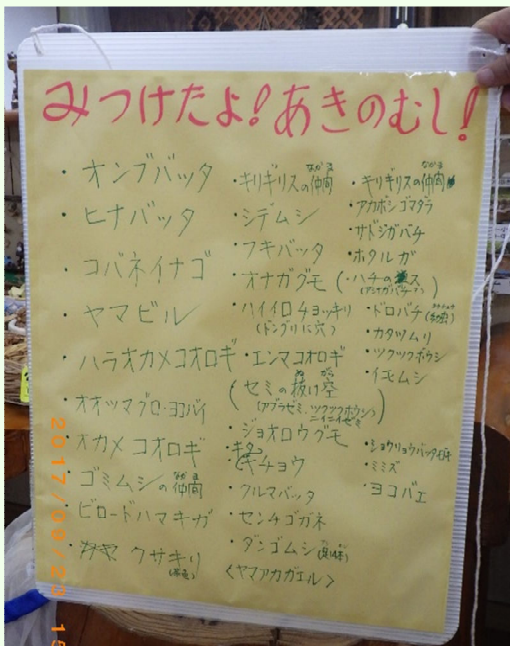 みつけたよ！あきのむし！
・オンブバッタ
・ヒナバッタ
・コバネイナゴ
・ヤマビル
・ハラオカメコオロギ
・オオツマグロ・ヨコバイ
・オカメコオロギ
・ゴミムシの仲間
なかま
・ビロードハマキガ
・クサキリ
・キリギリスの仲間
なかま
・シデムシ
・フキバッタ
・オナガグモ
・ハイイロチョッキリ
(ドングリに穴)
・エンマコオロギ
(セミの抜け空
ぬ がら
(アブラゼミ、ツクツクボウシ
ニイニイゼミ)
・ジョオロウグモ
・キタキチョウ
・クルマバッタ
・センチゴガネ
・ダンゴムシ
〈ヤマアカガエル〉
・キリギリスの仲間
なかま
・アカボシゴマダラ
・サトジガバチ
・ホタルガ
(・ハチのス
(アシナガバチ?)
・ドロバチ
・カタツムリ
・ツクツクボウシ
・イモムシ
・ショウリョウバッタ
・ミミズ
・ヨコバエ
2017/09/23 15